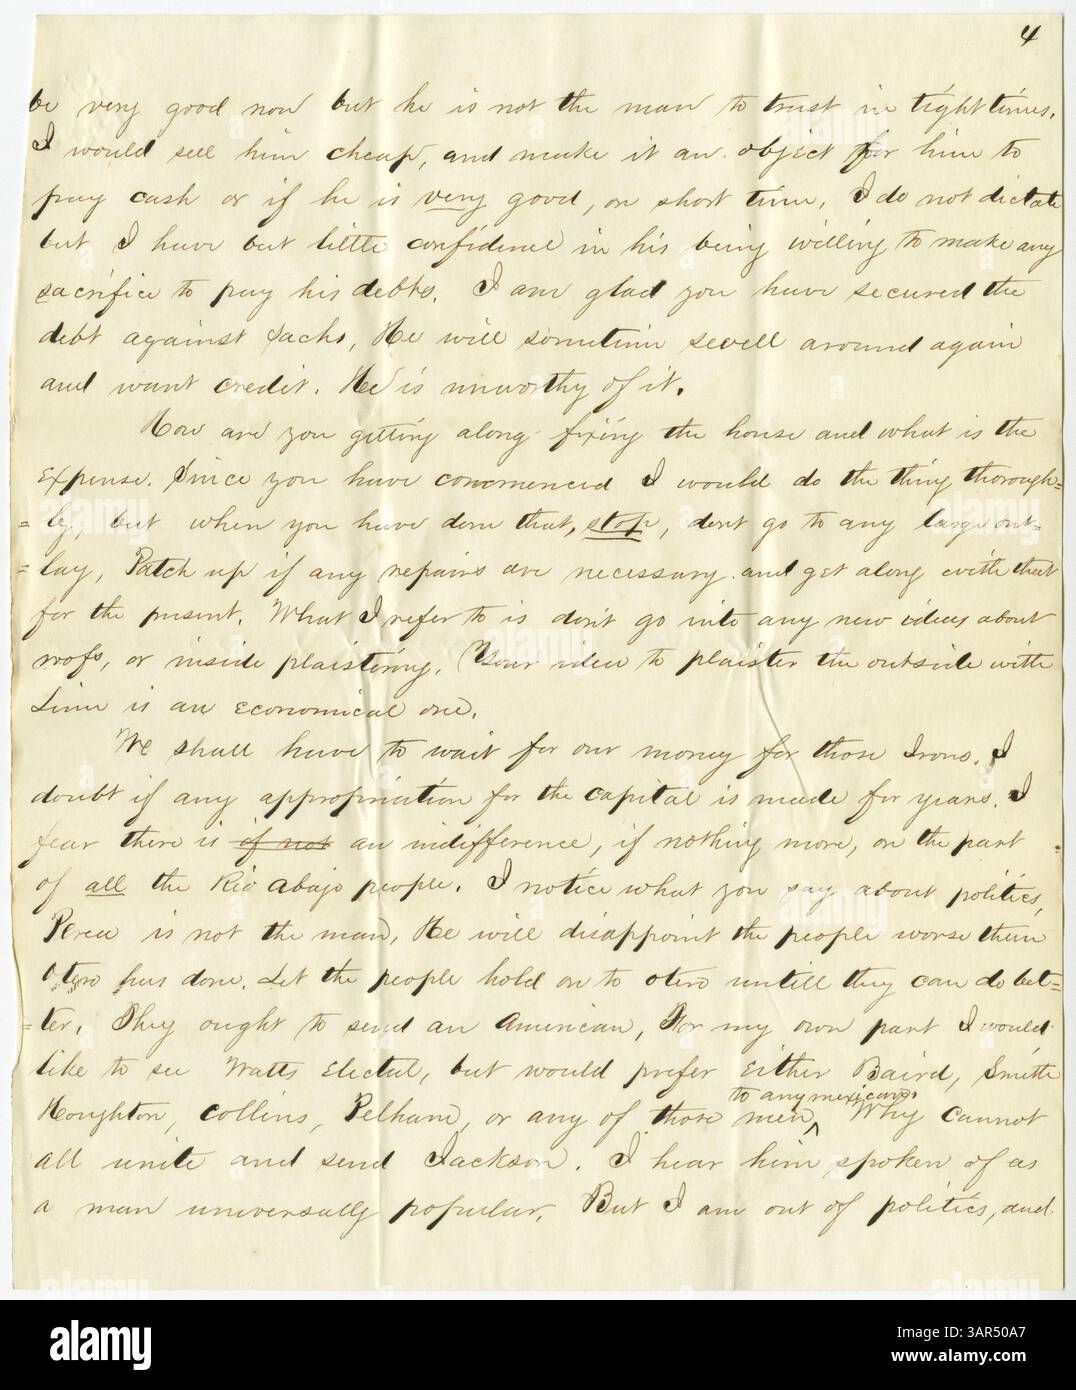 4
be very good now but he is not the man to trust in tight times.
I would sell him cheap, and make it an object for him to
pay cash or if he is very good, on short time, I do not dictate
but I have but little confidence in his being willing to make any
sacrifice to pay his debts. I am glad you have secured the
debt against Sachs, He will sometime swell around again
and want credit. He is unworthy of it.
How are you getting along fixing the house and what is the
expense. Since you have commenced I would do the thing thorough=
=ly, but when you have done that, stop, dont go to any large out=
=lay, Patch up if any repairs are necessary and get along with that
for the present. What I refer to is don't go into any new ideas about
roofs, or inside plaistering. Your idea to plaister the outside with
Lime is an economical one.
We shall have to wait for our money for those Irons. I
doubt if any appropriation for the capital is made for years. I
fear there is if not an indifference, if nothing more, on the part
of all the Rio abajo people. I notice what you say about politics,
Perea is not the man, He will disappoint the people worse than
Otero has done. Let the people hold on to Otero untill they can do bet=
=ter. They ought to send an American, For my own part I would
like to see Watts Elected, but would prefer Either Baird, Smith
Houghton, Collins, Pelham, or any of those men ^ to any mexican. Why cannot
all unite and send Jackson. I hear him spoken of as
a man universally popular. But I am out of politics, and
alamy
a
Image ID: 3AR50A7
www.alamy.com